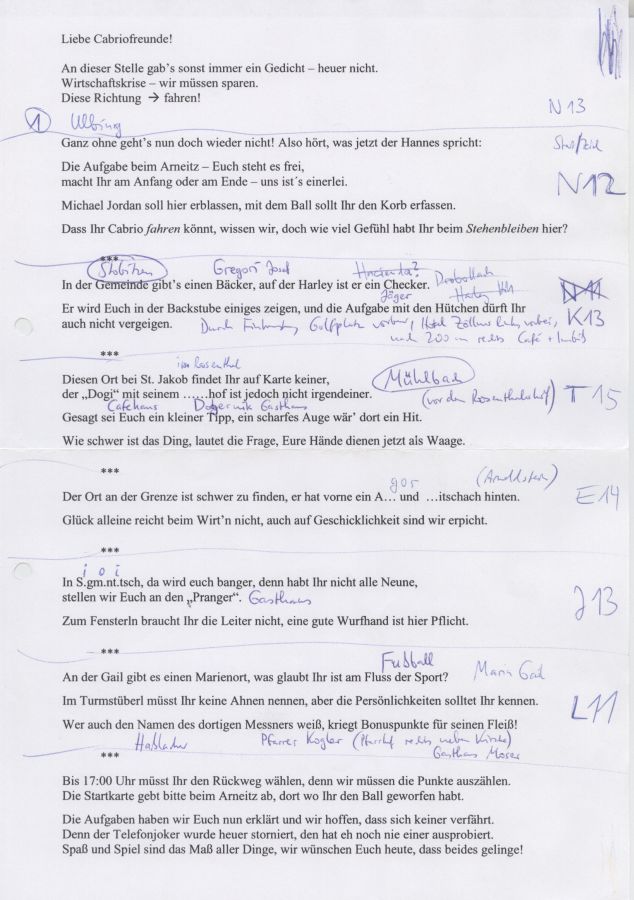 Liebe Cabriofreunde!
An dieser Stelle gab's sonst immer ein Gedicht – heuer nicht.
Wirtschaftskrise – wir müssen sparen.
Diese Richtung → fahren!
N13
1
Ganz ohne geht's nun doch wieder nicht! Also hört, was jetzt der Hannes spricht:
Die Aufgabe beim Arneitz – Euch steht es frei,
macht Ihr am Anfang oder am Ende – uns ist´s einerlei.
N12
Michael Jordan soll hier erblassen, mit dem Ball sollt Ihr den Korb erfassen.
Dass Ihr Cabrio fahren könnt, wissen wir, doch wie viel Gefühl habt Ihr beim Stehenbleiben hier?
***
Stobitzen Gregori Josef
In der Gemeinde gibt's einen Bäcker, auf der Harley ist er ein Checker. Drobollach
Jäger
N11
Er wird Euch in der Backstube einiges zeigen, und die Aufgabe mit den Hütchen dürft Ihr
auch nicht vergeigen. Durch Golfplatz vorbei, Hotel vorbei, K13
nach 200 m rechts Café + Imbiß
***
im Rosental
Diesen Ort bei St. Jakob findet Ihr auf Karte keiner, Mühlbach
der „Dogi" mit seinem ……hof ist jedoch nicht irgendeiner. (vor dem Rosentalerhof) T 15
Cafehaus Gasthaus
Gesagt sei Euch ein kleiner Tipp, ein scharfes Auge wär' dort ein Hit.
Wie schwer ist das Ding, lautet die Frage, Eure Hände dienen jetzt als Waage.
***
gor (Arnoldstein)
Der Ort an der Grenze ist schwer zu finden, er hat vorne ein A… und …itschach hinten. E14
Glück alleine reicht beim Wirt'n nicht, auch auf Geschicklichkeit sind wir erpicht.
***
i o i
In S.gm.nt.tsch, da wird euch banger, denn habt Ihr nicht alle Neune,
stellen wir Euch an den „Pranger". Gasthaus
J13
Zum Fensterln braucht Ihr die Leiter nicht, eine gute Wurfhand ist hier Pflicht.
***
Fußball
An der Gail gibt es einen Marienort, was glaubt Ihr ist am Fluss der Sport? Maria Gail
Im Turmstüberl müsst Ihr keine Ahnen nennen, aber die Persönlichkeiten solltet Ihr kennen. L11
Wer auch den Namen des dortigen Messners weiß, kriegt Bonuspunkte für seinen Fleiß!
Pfarrer Kogler (Pfarrhof rechts neben Kirche)
Gasthaus Moser
***
Bis 17:00 Uhr müsst Ihr den Rückweg wählen, denn wir müssen die Punkte auszählen.
Die Startkarte gebt bitte beim Arneitz ab, dort wo Ihr den Ball geworfen habt.
Die Aufgaben haben wir Euch nun erklärt und wir hoffen, dass sich keiner verfährt.
Denn der Telefonjoker wurde heuer storniert, den hat eh noch nie einer ausprobiert.
Spaß und Spiel sind das Maß aller Dinge, wir wünschen Euch heute, dass beides gelinge!